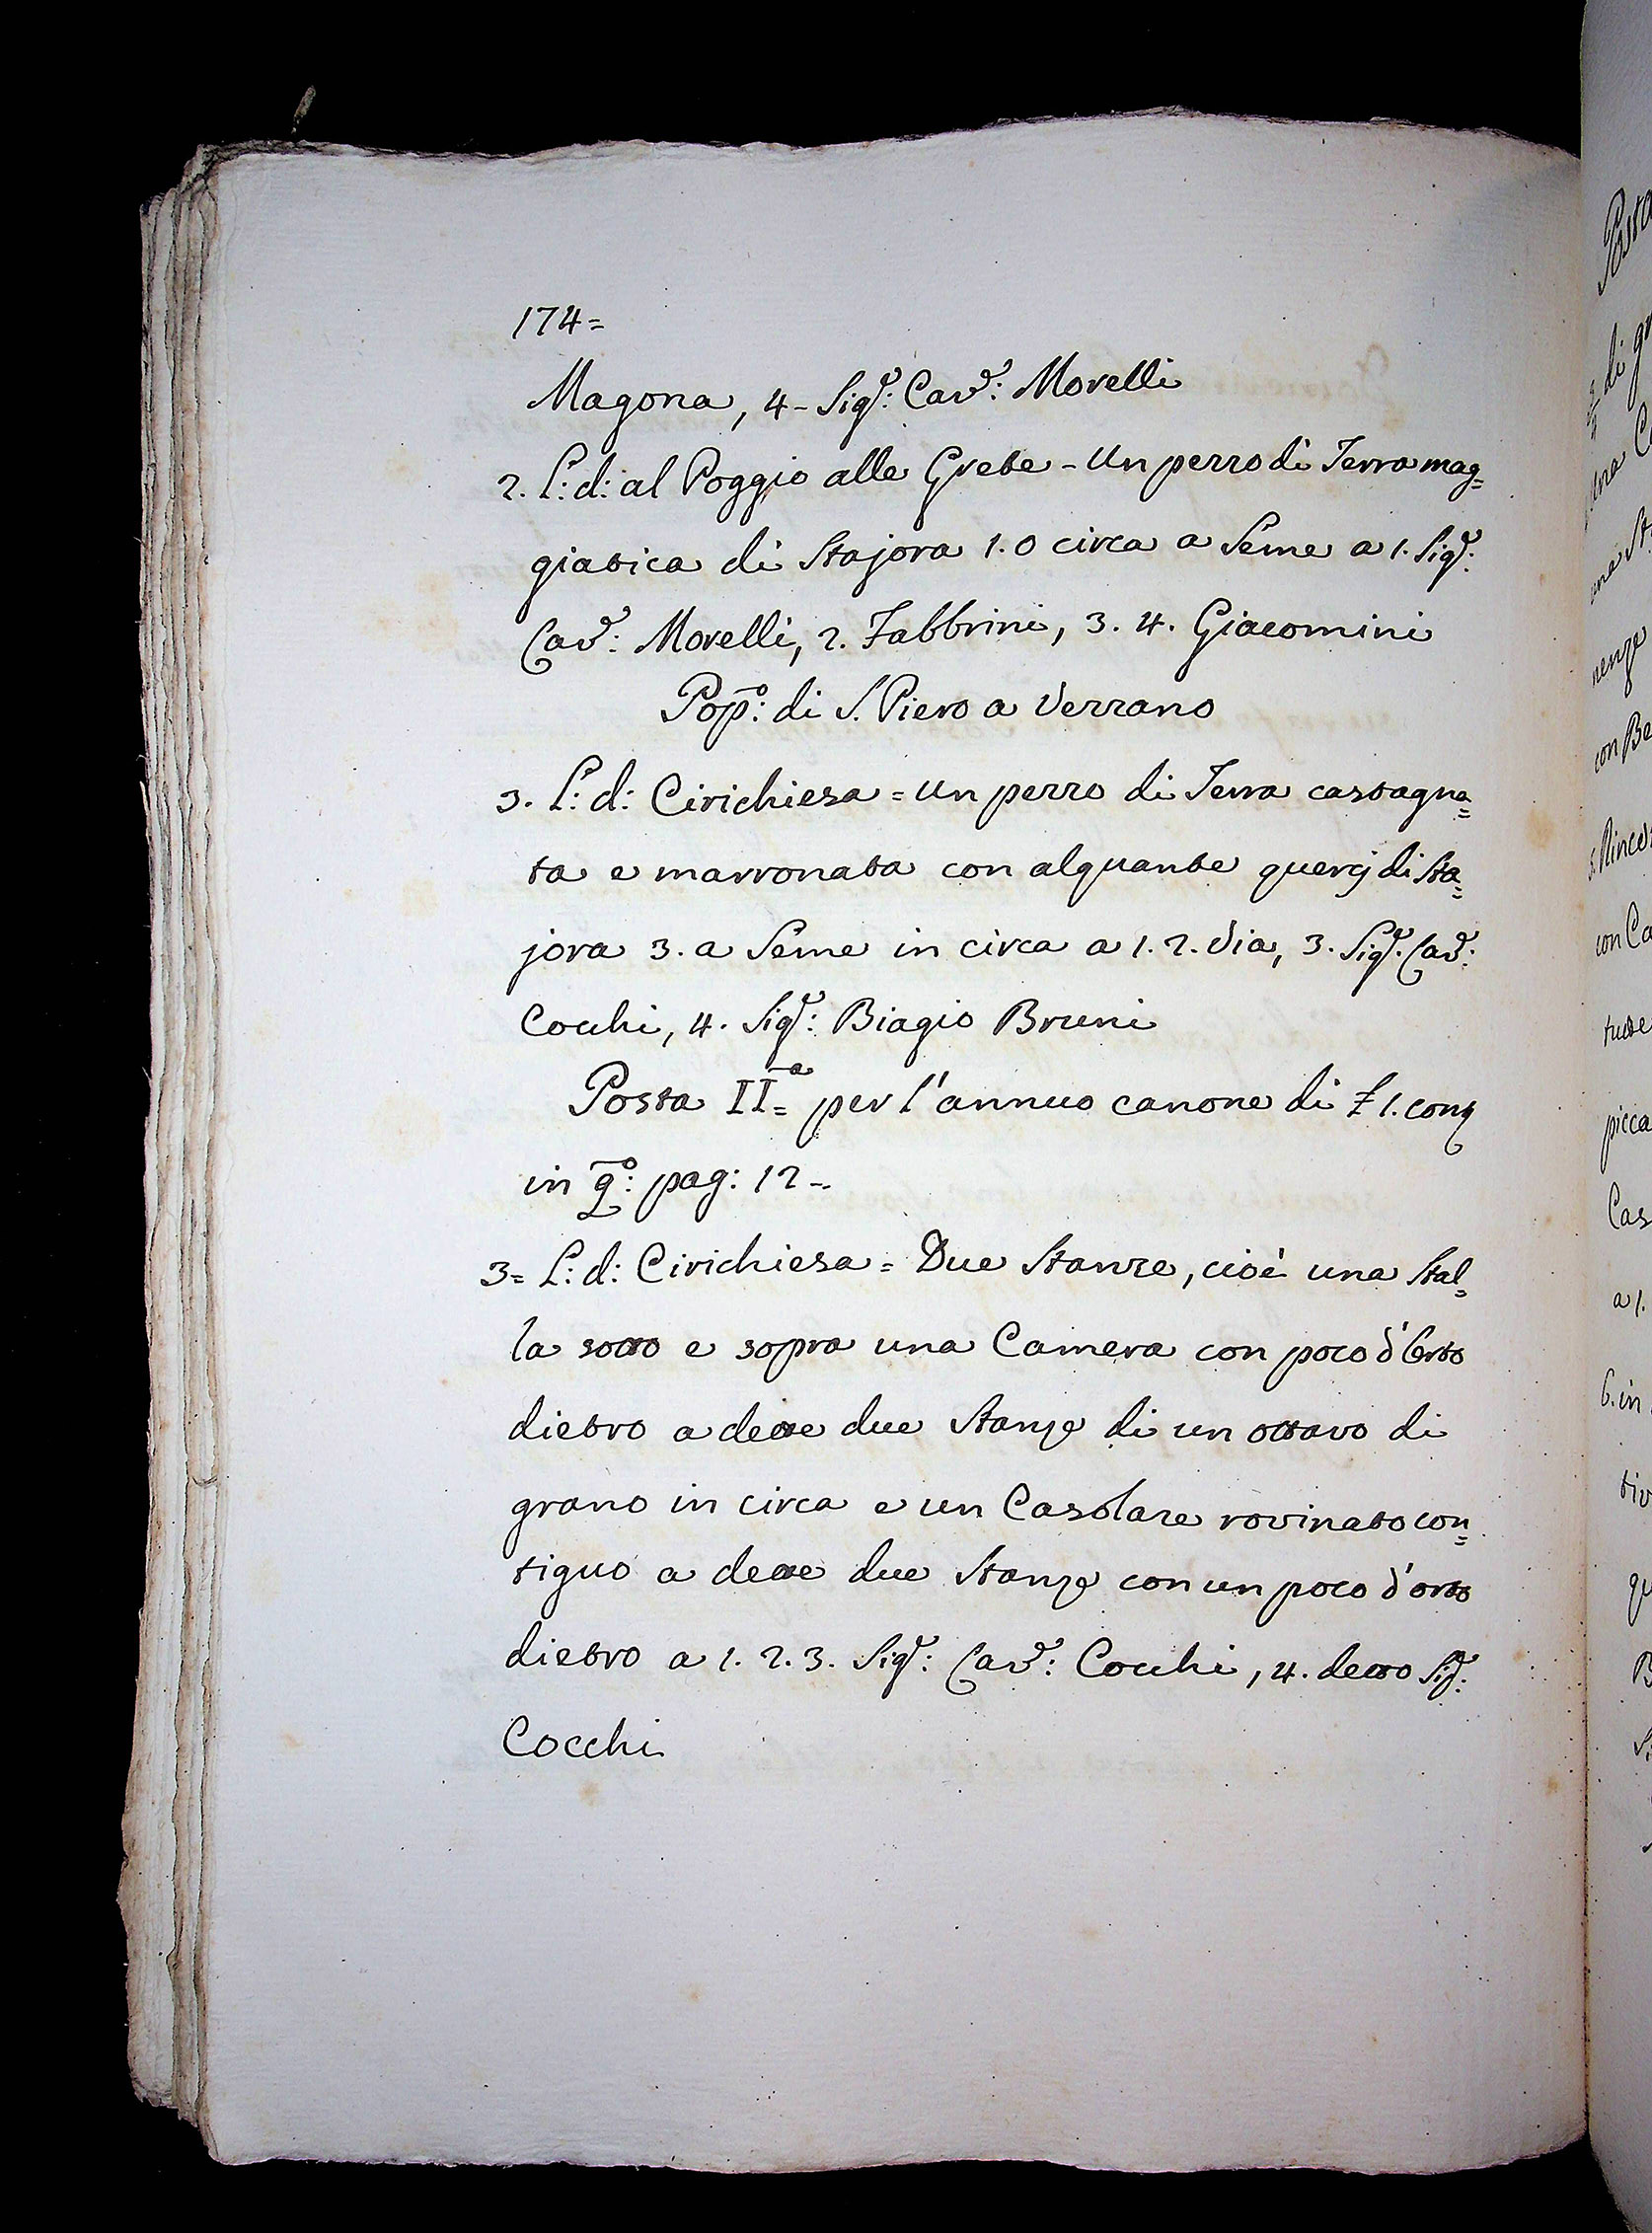 174=
Magona, 4- Sig.r: Cav.r: Morelli
2. L: d: al Poggio alle Grete - Un pezzo di Terra mag=
giatica di Stajora 1.0 circa a Seme a 1. Sig.r:
Cav.r: Morelli, 2. Fabbrini, 3. 4. Giacomini
Pop.o: di S. Piero a Verzano
3. L: d: Cirichiesa = Un pezzo di Terra castagna=
ta e marronata con alquante quercj di Sta=
jora 3. a Seme in circa a 1. 2. Via, 3. Sig.r: Cav.r:
Cocchi, 4. Sig.r: Biagio Bruni
Posta II=a per l'annuo canone di £ 1. come
in q.o: pag: 12-
3= L: d: Cirichiesa = Due Stanze, cioè una Stal=
la sotto e sopra una Camera con poco d'Orto
dietro a dette due Stanze di un ottavo di
grano in circa e un Casolare rovinato con=
tiguo a dette due Stanze con un poco d'orto
dietro a 1. 2. 3. Sig.r: Cav.r: Cocchi, 4. detto Sig.r:
Cocchi